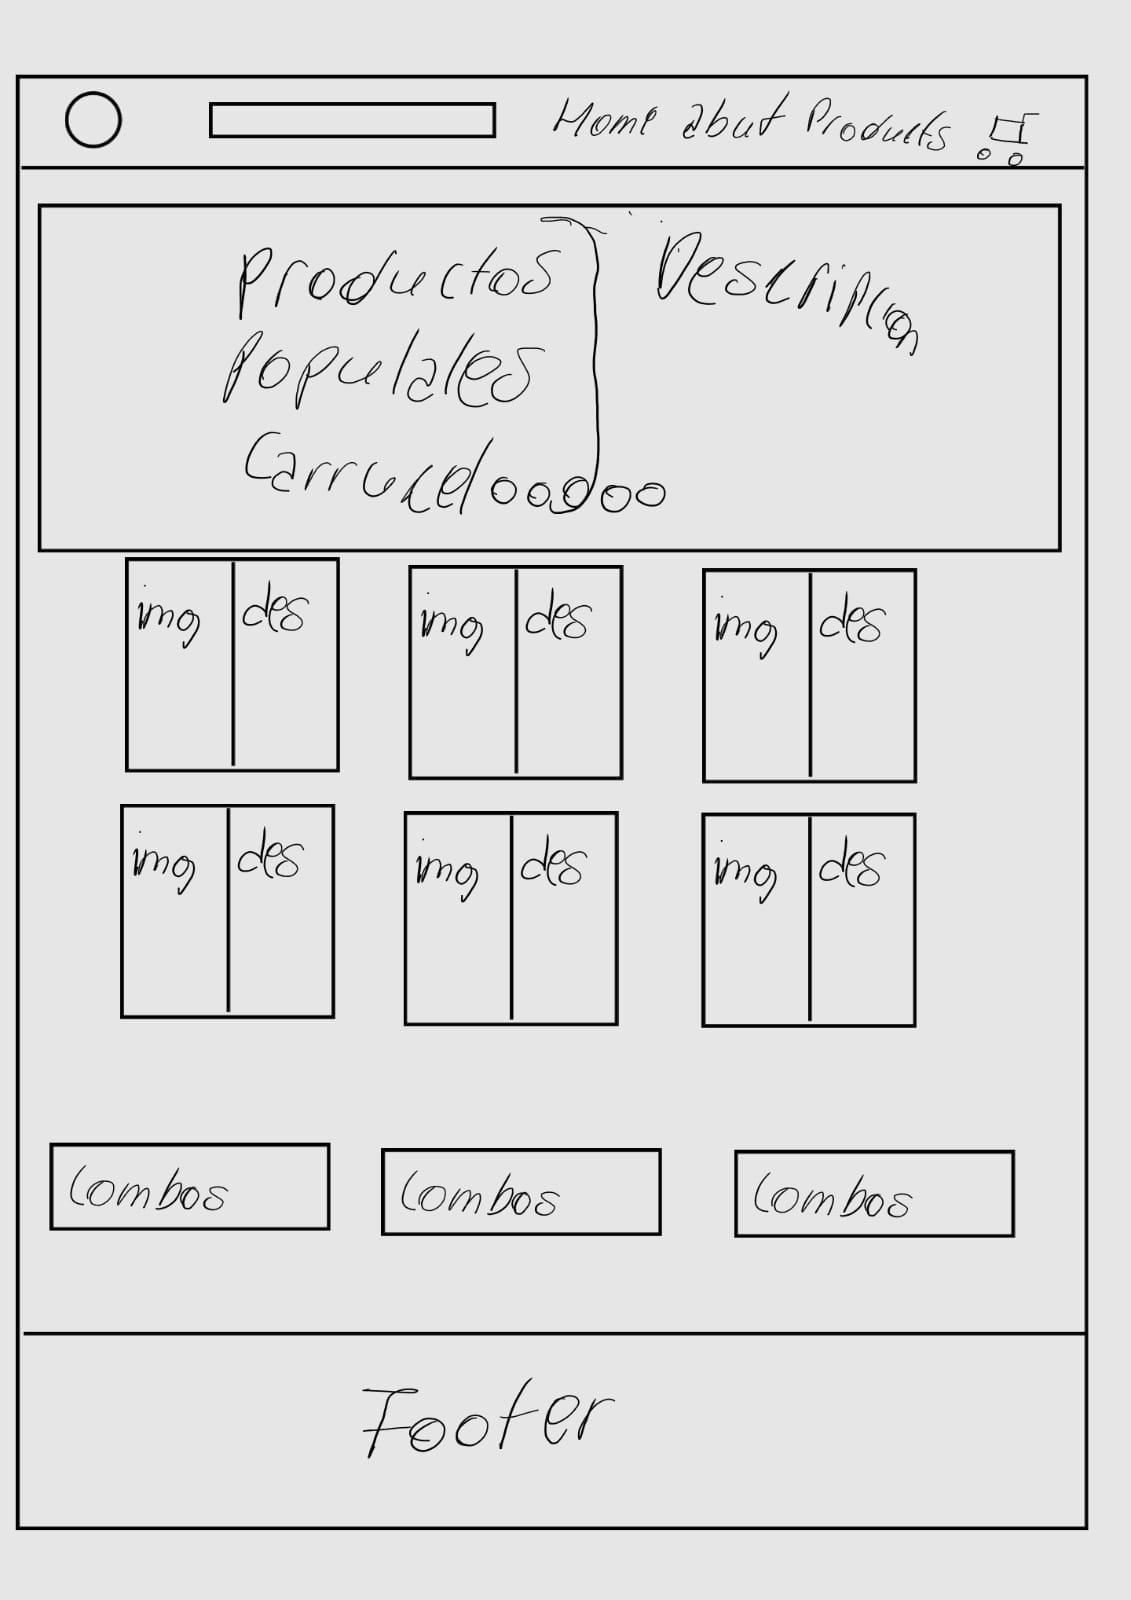 Home abut Products
Productos
Populales
Carrucel
Descripcion
img des
img des
img des
img des
img des
img des
Combos
Combos
Combos
Footer